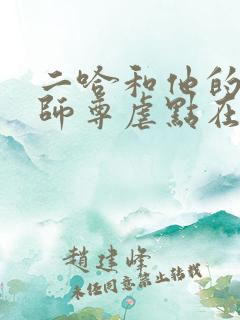 二哈和他的
師尊虐點在
趙建峰
未經同意禁止轉載